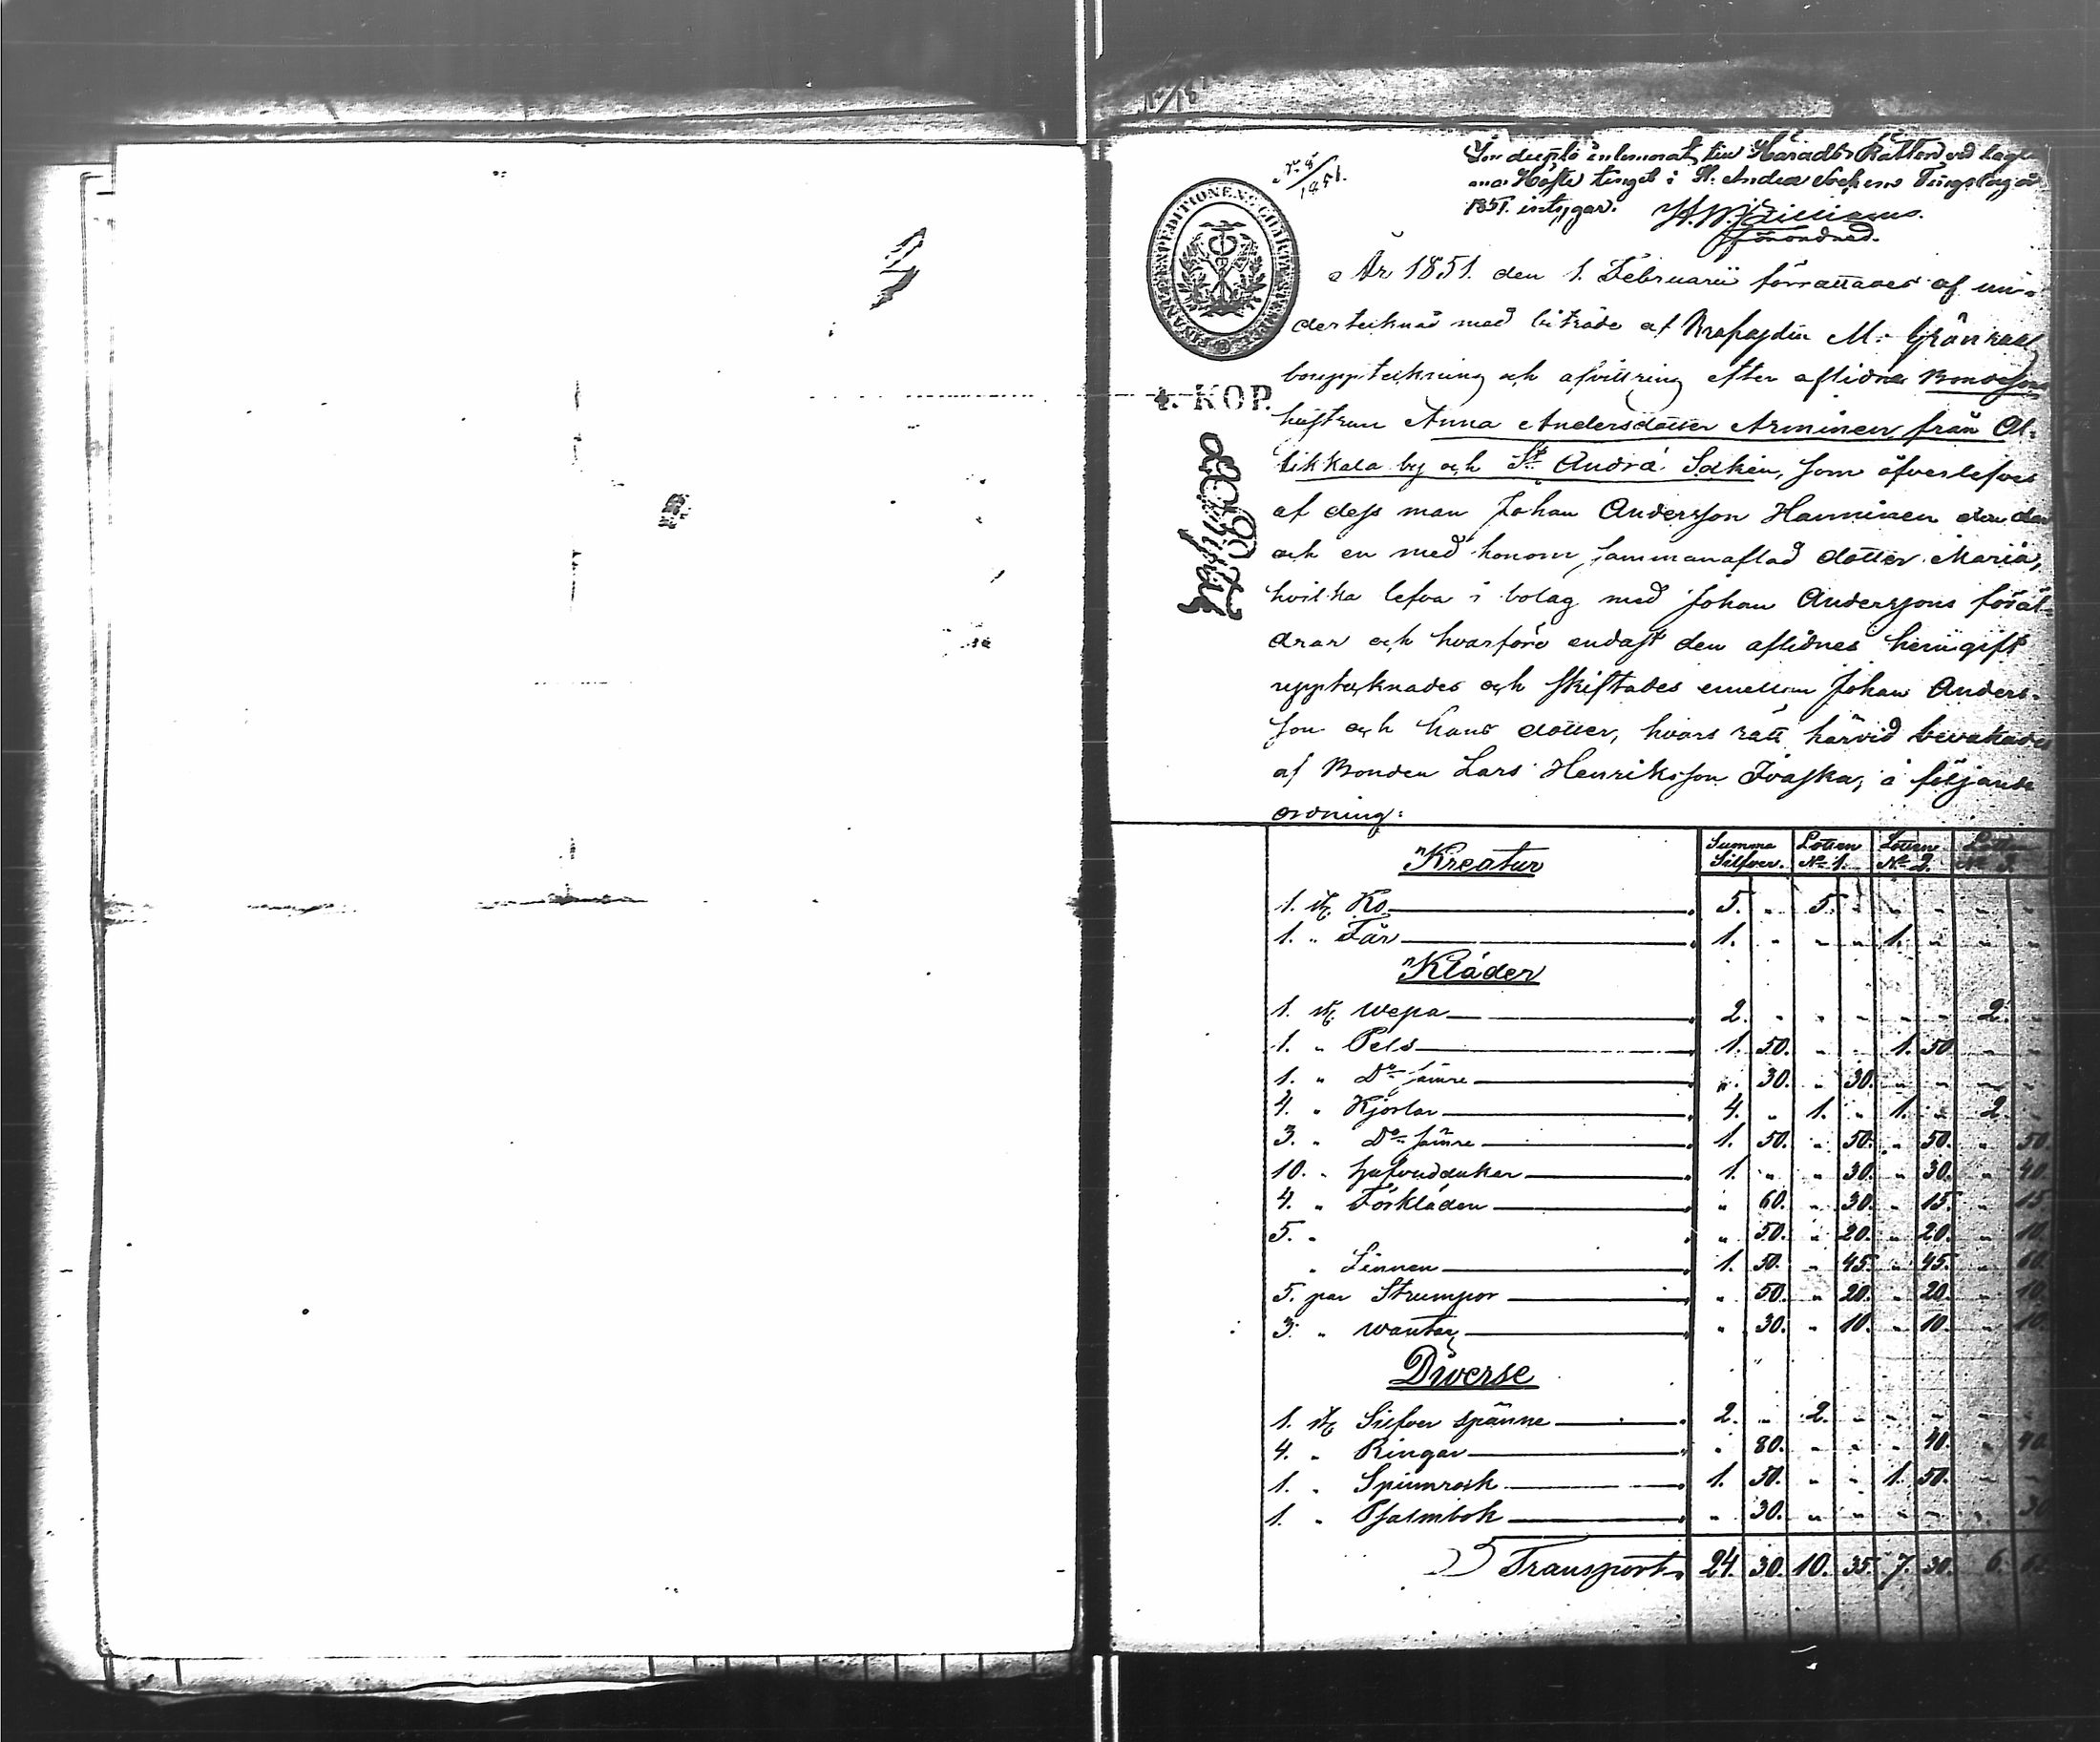 N:o 8
1851.
In duplo inlemnat till Härads Rätten vid lagti-
ma Höste tinget i St. Andreæ Sockens Tingslag år
1851. intygar.
förordnad.
FINANCE EXPEDITIONENS CHARTÆ STEMPEL
4. KOP.
År 1851. den 1. Februarii förrättades af un-
dertecknad med biträde af M. Grönvall
bouppteckning och afvittring efter aflidna Bondesons
hustrun Anna Andersdotter Arminen från Al-
likkala by och St. Andræ Sockn, som öfverlefves
af dess man Johan Andersson Hanninen
och en med honom sammanaflad dotter Maria,
hvilka lefva i bolag med Johan Anderssons föräl-
drar och hvarföre endast den aflidnes hemgift
upptecknades och skiftades emellan Johan Anders-
son och hans dotter, hvars rätt härvid bevakades
af Bonden Lars Henriksson Ivaska, i följande
ordning:
Kreatur Summa Silfver. Lotten N:o 1. Lotten N:o 2. Lotten N:o 3.
1. st. Ko 5. " 5. " " " " "
1. " Får 1. " " " 1. " " "
Kläder
1. st. Wepa 2. " " " " " 2. "
1. " Pels 1. 50. " " 1. 50. " "
1. " D:o sämre " 30. " 30. " " " "
4. " Kjortlar 4. " 1. " 1. " 2. "
3. " D:o sämre 1. 50. " 50. " 50. " 50.
10. " Hufvuddukar 1. " " 30. " 30. " 40.
4. " Förkläden " 60. " 30. " 15. " 15.
5. " " 50. " 20. " 20. " 10.
" Linnen 1. 50. " 45. " 45. " 60.
5. par Strumpor " 50. " 20. " 20. " 10.
3. " Wantar " 30. " 10. " 10. " 10.
Diverse
1. st. Silfver spänne 2. " 2. " " " " "
4. " Ringar " 80. " " " 40. " 40.
1. " Spinnrock 1. 50. " " 1. 50. " "
1. " Psalmbok " 30. " " " " " 30
Transport 24. 30. 10. 35. 7. 30. 6. 6